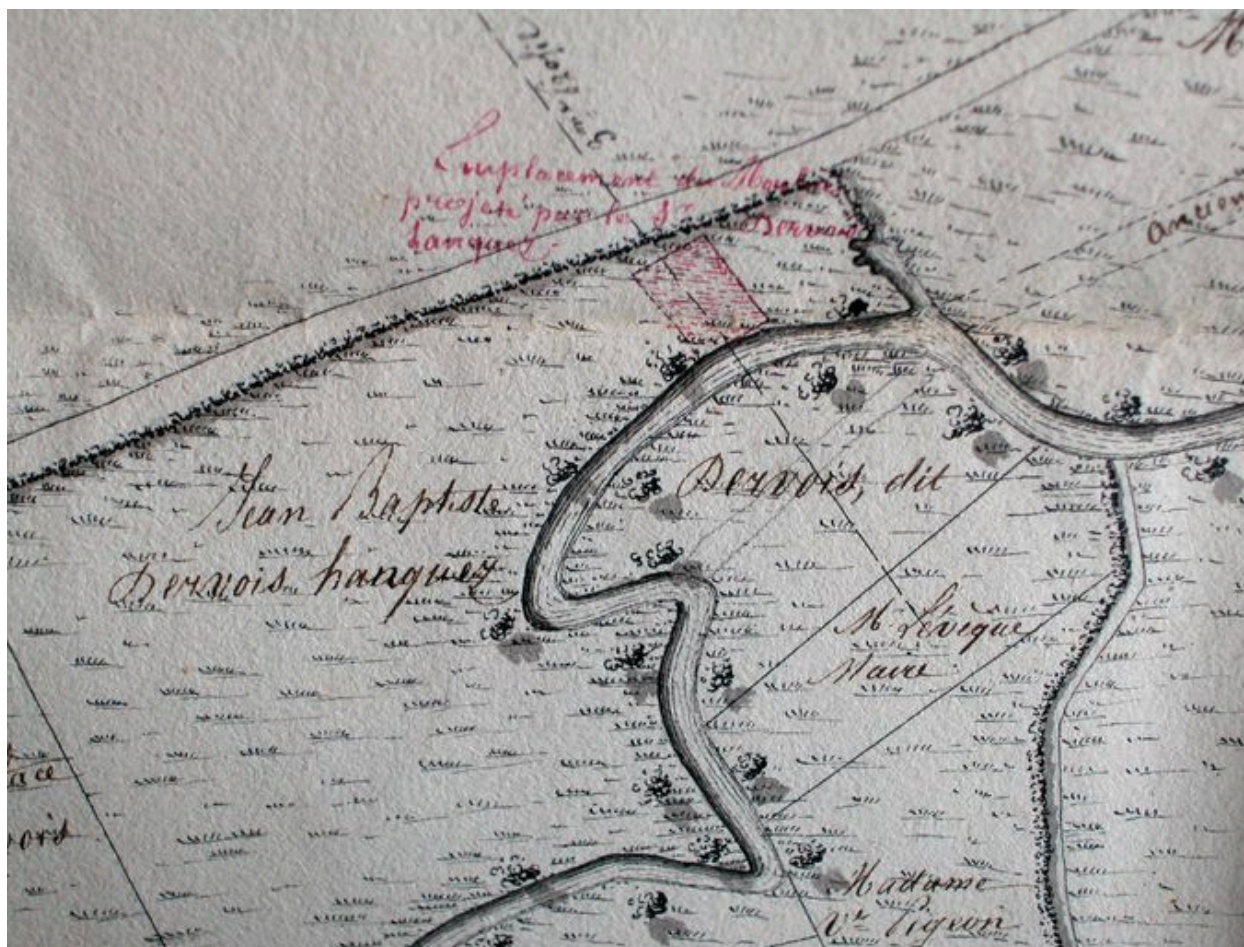 3me Profil
M
Emplacement du Moulin
projeté par le Sr Dervois
hanquez.
ancien
Jean Baptiste
Dervois hanquez
Dervois, dit
Mr Lévêque
Maire
ace
vois
Madame
Ve Pigeon